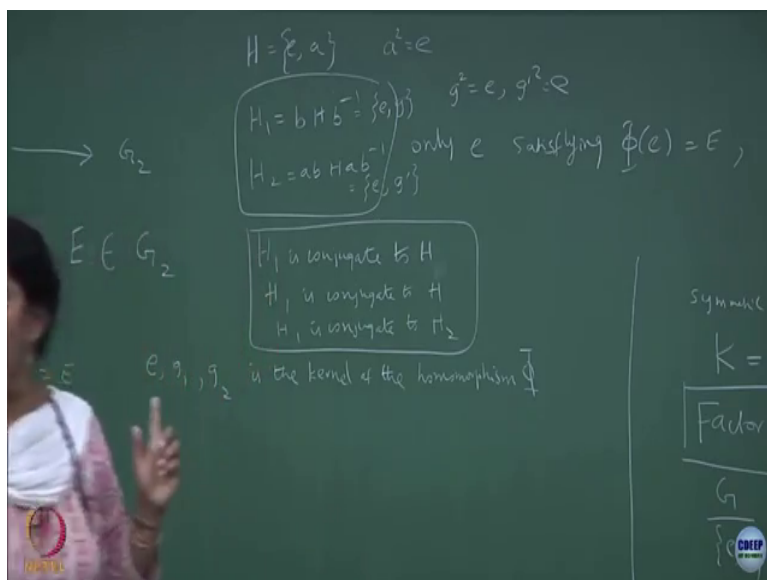 H = {e, a} a² = e
g² = e, g'² = e
H₁ = b H b⁻¹ = {e, g}
H₂ = ab H ab⁻¹
= {e, g'}
only e satisfying Φ(e) = E,
→ G₂
E ∈ G₂
H₁ is conjugate to H
H₁ is conjugate to H
H₁ is conjugate to H₂
= E e, g₁, g₂ is the kernel of the homomorphism Φ
symmetric
K =
Factor
G
{e
NPTEL
CDEEP
IIT BOMBAY